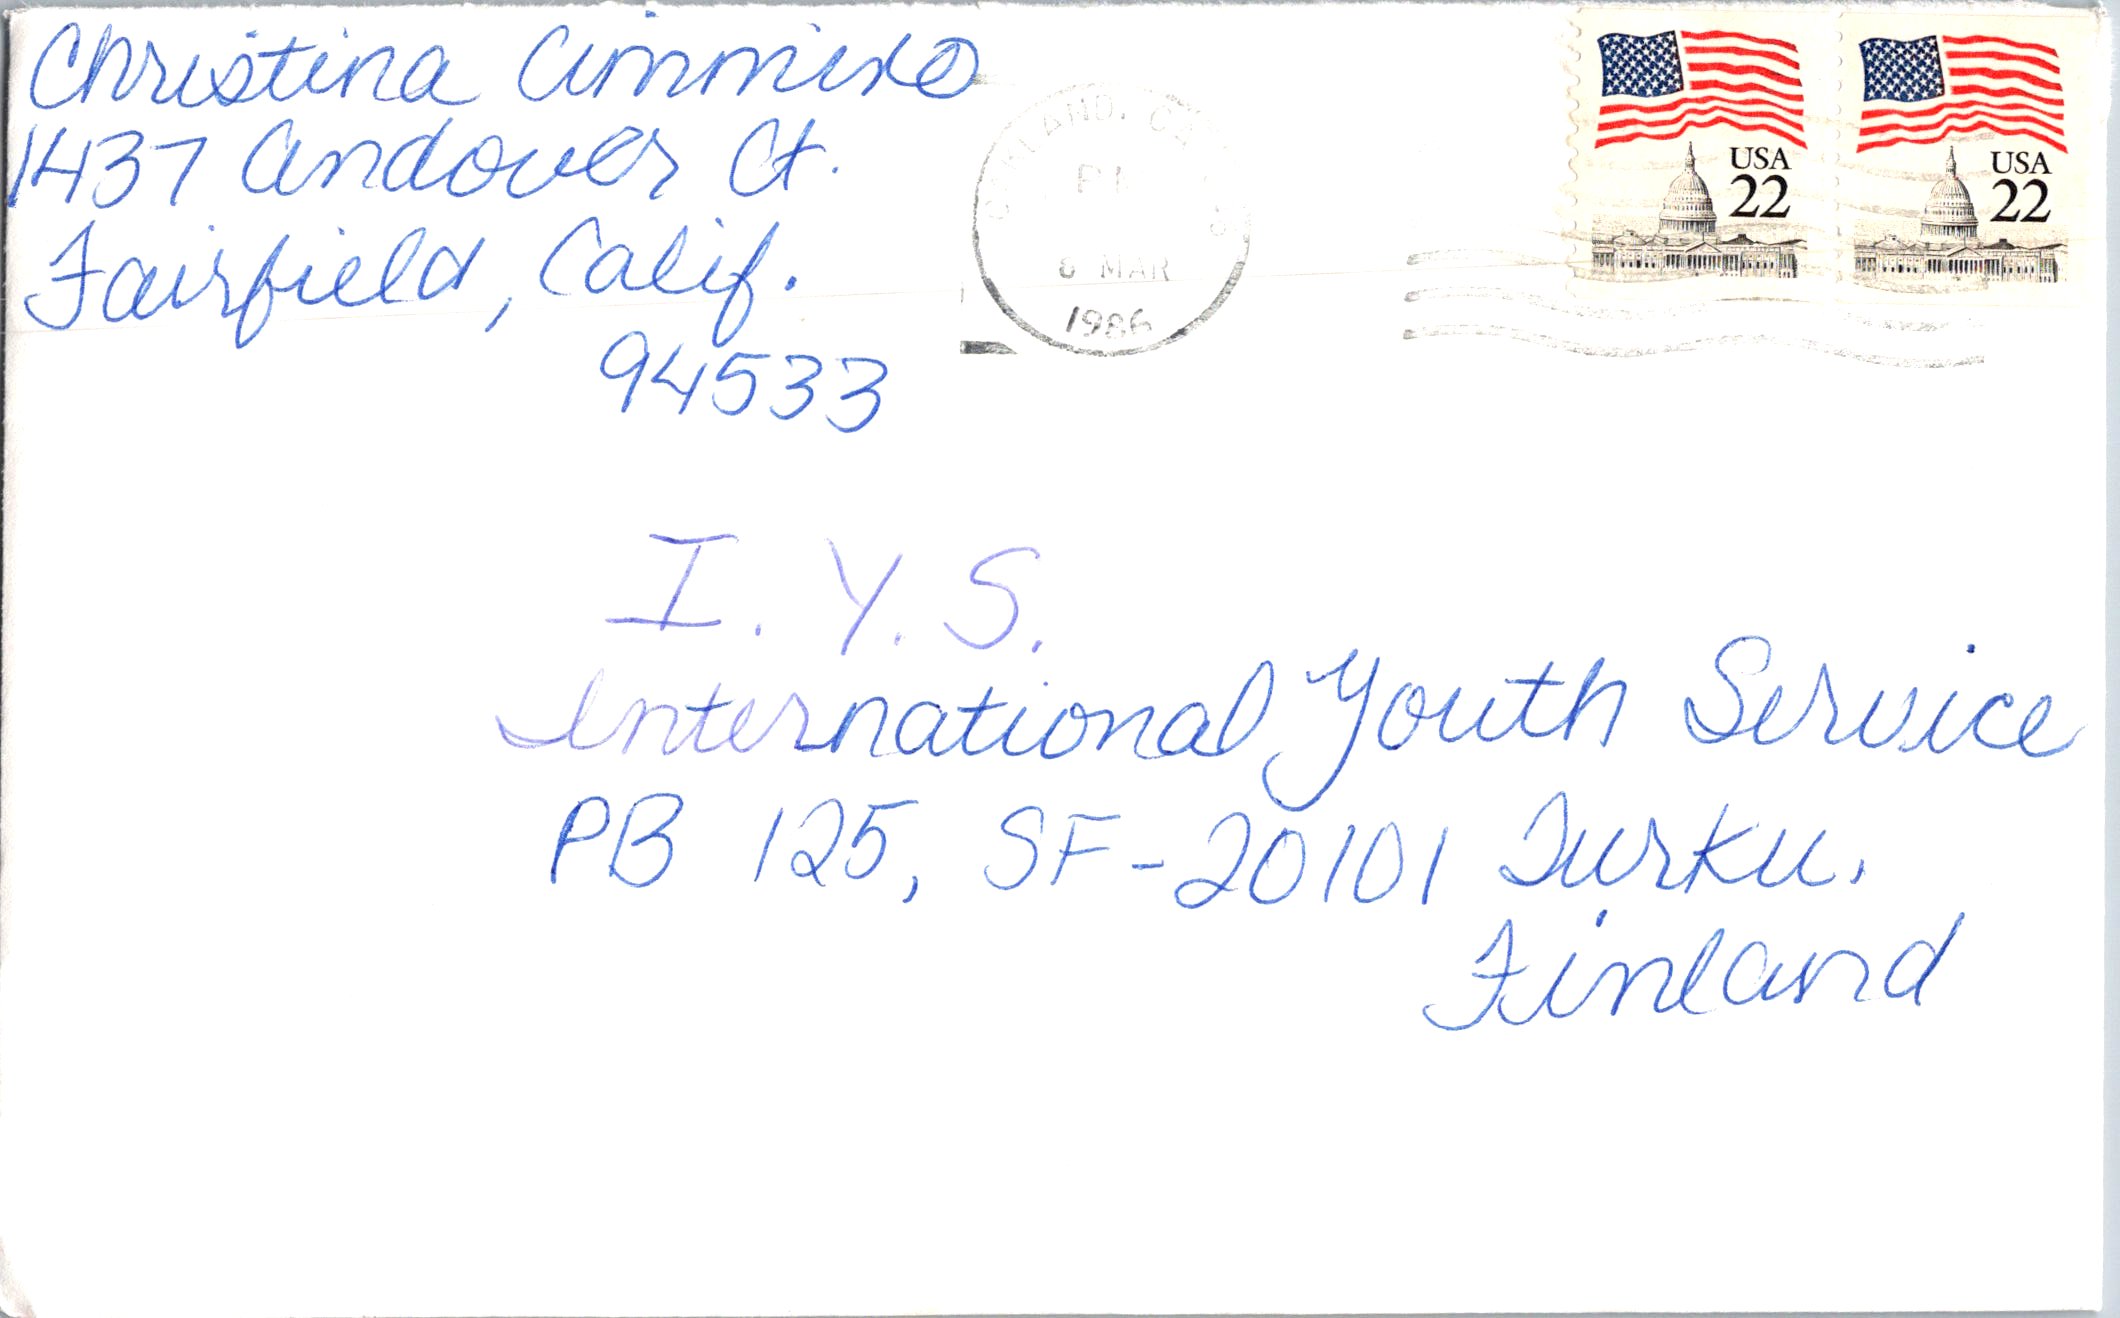 Christina
1437 Andover Ct.
Fairfield, Calif.
94533
OAKLAND, CA
PM
8 MAR
1986
USA
22
USA
22
I. Y. S.
International Youth Service
PB 125, SF-20101 Turku.
Finland